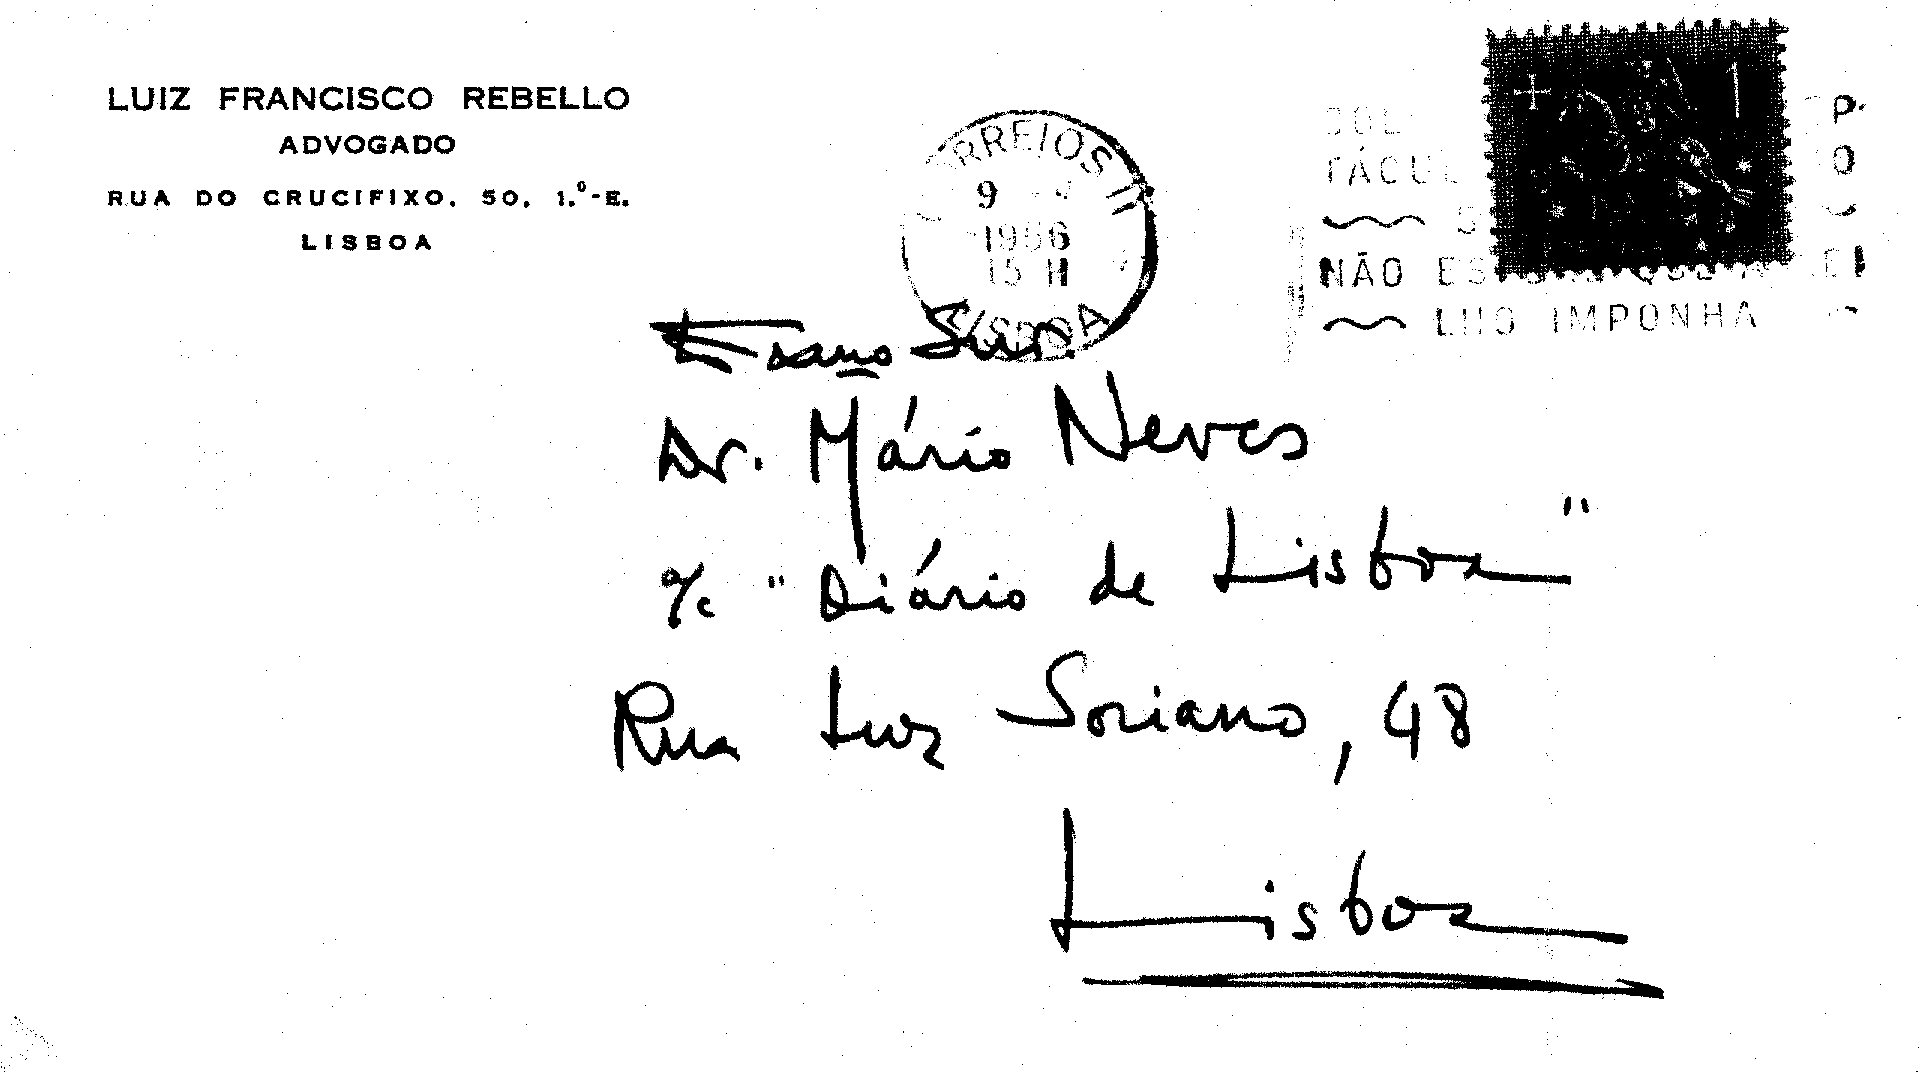 LUIZ FRANCISCO REBELLO
ADVOGADO
RUA DO CRUCIFIXO, 50, 1.º-E.
LISBOA
CORREIOS
9
1966
15 H
LISBOA
TÁCUL
NÃO
IMPONHA
Exmo Snr.
Dr. Mário Neves
a/c "Diário de Lisboa"
Rua Luz Soriano, 48
Lisboa